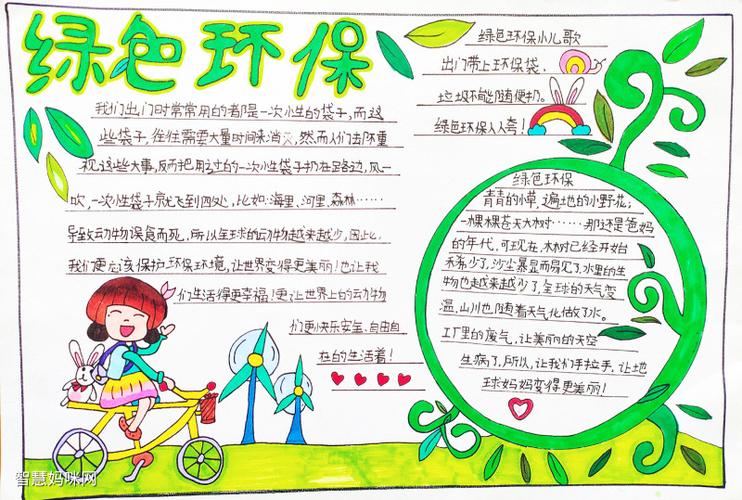 绿色环保
我们出门时常常用的都是一次小生的袋子,而这
些袋子,往往需要大量时间来消灭,然而人们去不重
视这些大事,反而把用过的一次小生袋子扔在路边,风一
吹,一次小生袋子就飞到四处,比如:海里、河里、森林……
导致动物误食而死,所以全球的动物越来越少,因此,
我们更应该保护环保环境,让世界变得更美丽!也让我
们生活得更幸福!更让世界上的动物
们更快乐安全、自由自
在的生活着!
绿色环保小儿歌
出门带上环保袋、
垃圾不能随便扔。
绿色环保人人夸!
绿色环保
青青的小草,遍地的小野花;
一棵棵苍天大树……那还是爸妈
的年代,可现在,木树已经开始
稀少了,沙尘暴显而易见了,水里的生
物也越来越少了,全球的天气变
温,山川也随着天气化做了水。
工厂里的废气,让美丽的天空
生病了,所以,让我们手拉手,让地
球妈妈变得更美丽!
智慧妈咪网